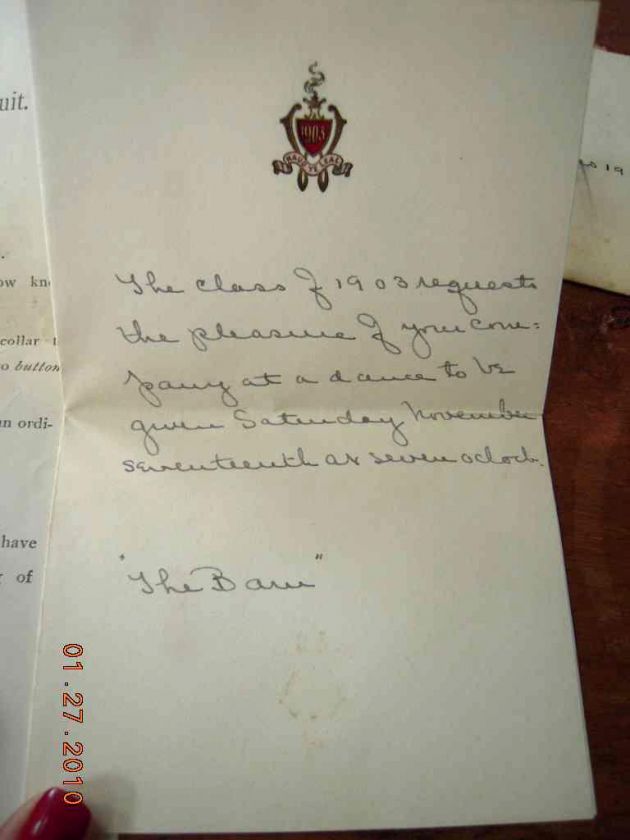 uit.
1903
The class of 1903 requests
the pleasure of your com=
pany at a dance to be
given Saturday November
seventeenth at seven oclock.
"The Barn"
ow kn
collar t
o button
an ordi-
have
of
19
01.27.2010